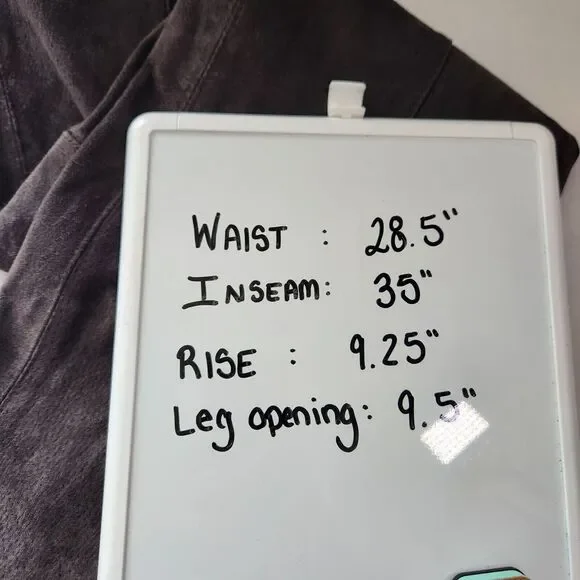 WAIST : 28.5"
INSEAM: 35"
RISE : 9.25"
Leg opening: 9.5"